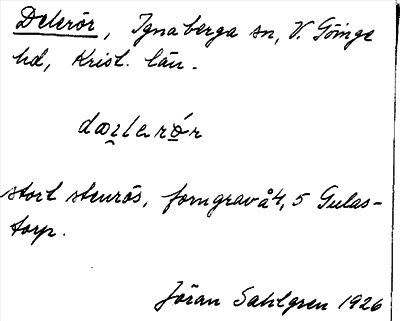 Delerör, Ignaberga sn, V. Göinge
hd, Krist. län.
stort stenrös, forngrav å 4, 5 Gulas-
torp.
Jöran Sahlgren 1926